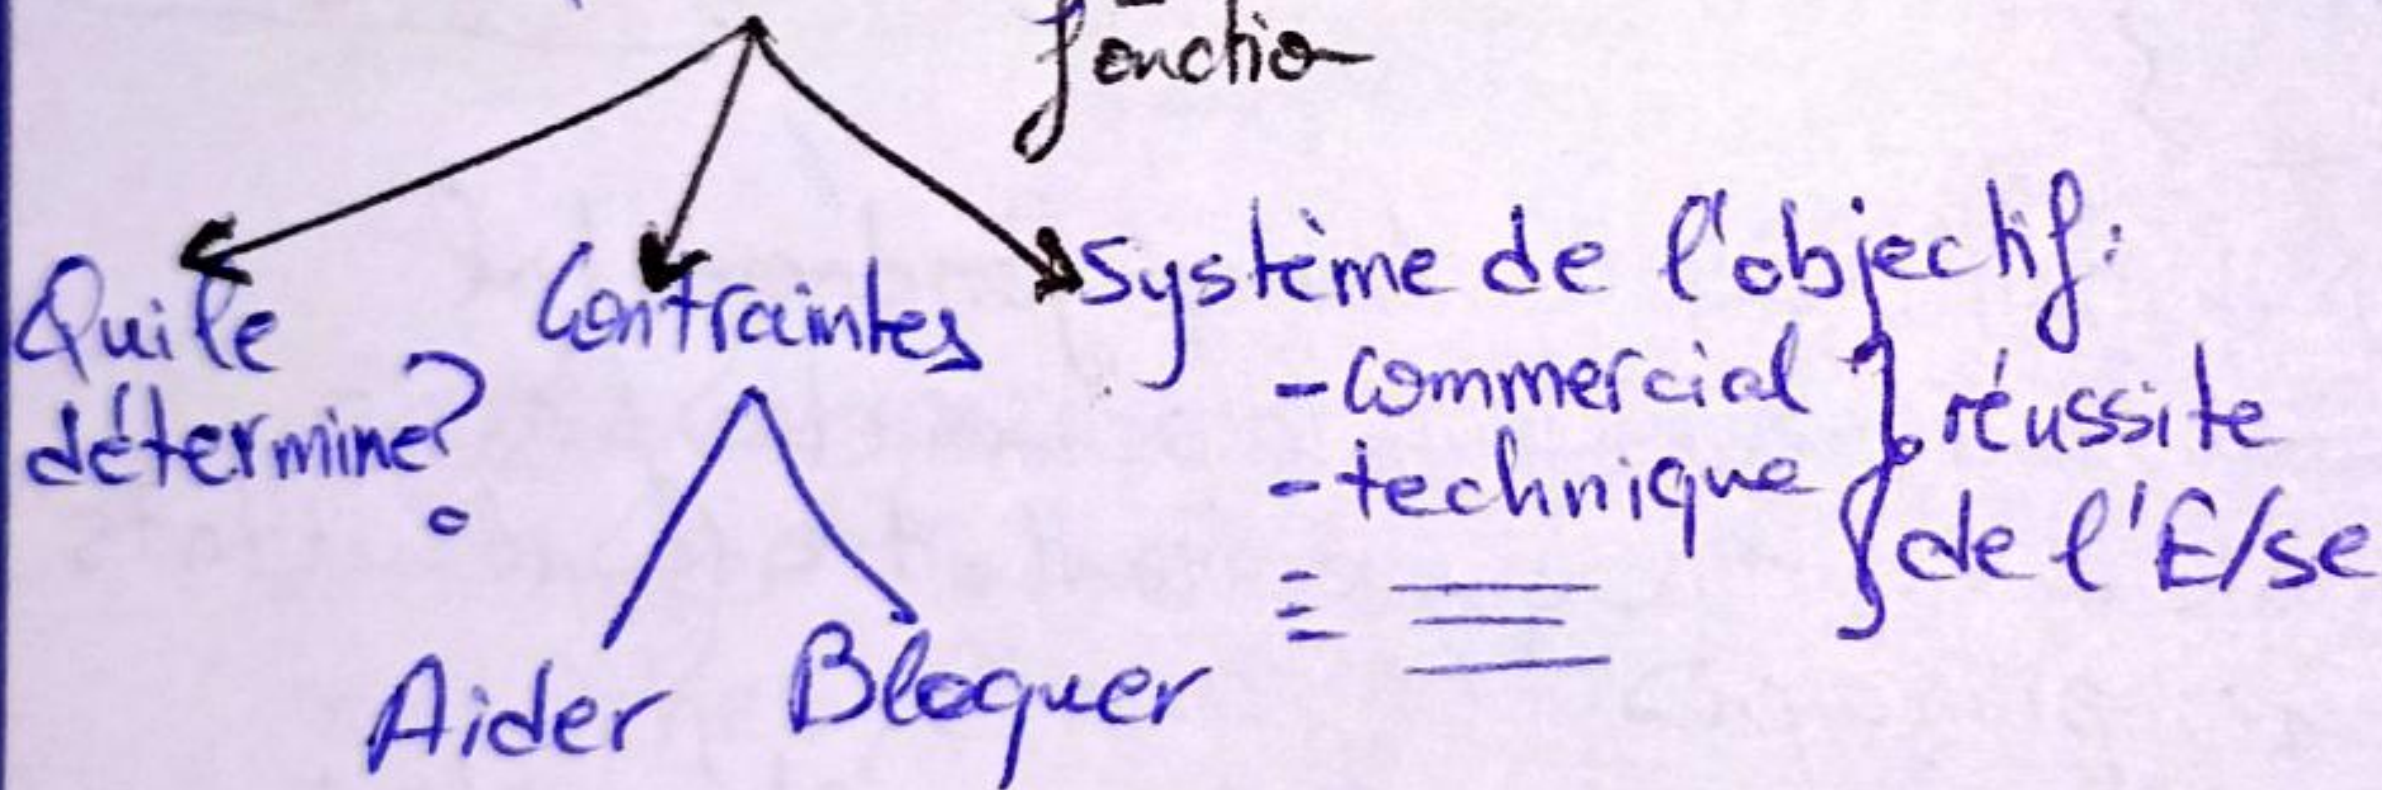 fonction
Qui le
détermine?
Contraintes
Aider
Bloquer
Système de l'objectif:
- commercial
- technique
réussite
de l'E/se